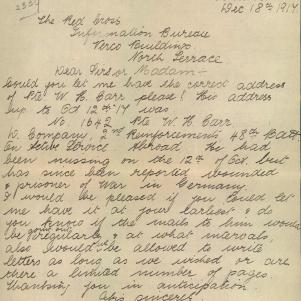 Dec 18th 1917
The Red Cross
Information Bureau
Verco Buildings
North Terrace
Dear Sirs or Madam –
Could you let me have the correct address
of Pte W. H. Carr please? His address
up to Oct 12th 17 was
No. 1642 Pte W. H. Carr
D. Company, 2nd Reinforcements 48th Batt
On Active Service Abroad. He had
been missing on the 12th of Oct. but
has since been reported wounded
& prisoner of War in Germany.
I would be pleased if you could let
me have it at your earliest & do
you know if the mails to him would
be going out regularly & at what intervals,
also would we be allowed to write
letters as long as we wished or are
there a limited number of pages.
Thanking you in anticipation.
sincerely